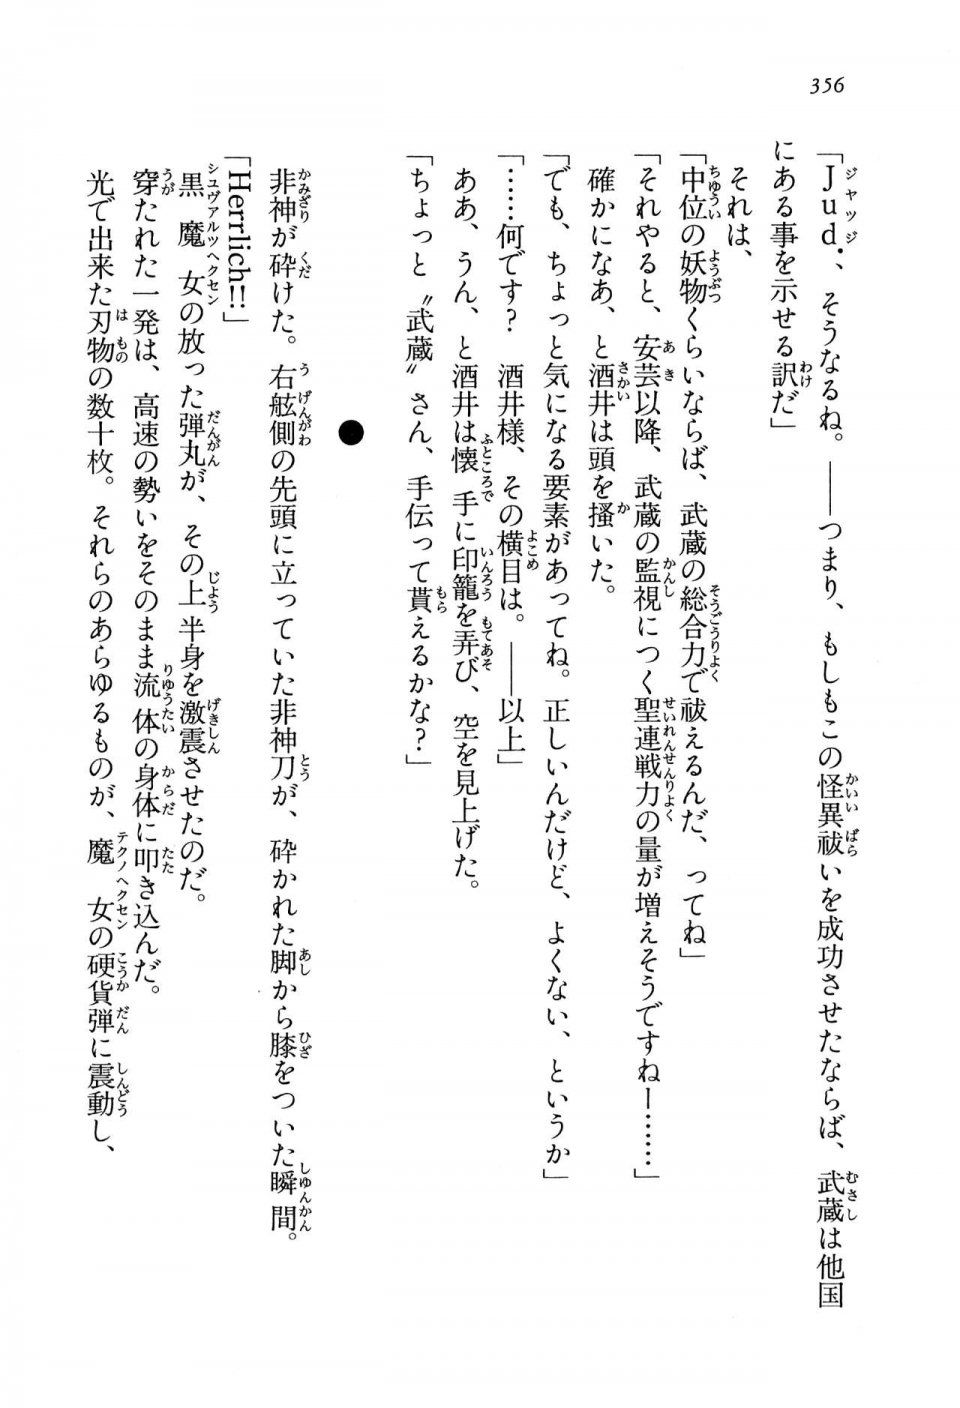 356
「Jud.、そうなるね。――つまり、もしもこの怪異祓いを成功させたならば、武蔵は他国
にある事を示せる訳だ」
それは、
「中位の妖物くらいならば、武蔵の総合力で祓えるんだ、ってね」
「それやると、安芸以降、武蔵の監視につく聖連戦力の量が増えそうですねー……」
確かになあ、と酒井は頭を掻いた。
「でも、ちょっと気になる要素があってね。正しいんだけど、よくない、というか」
「……何です？　酒井様、その横目は。――以上」
ああ、うん、と酒井は懐手に印籠を弄び、空を見上げた。
「ちょっと〝武蔵〟さん、手伝って貰えるかな？」
●
非神が砕けた。右舷側の先頭に立っていた非神刀が、砕かれた脚から膝をついた瞬間。
「Herrlich!!」
黒魔女の放った弾丸が、その上半身を激震させたのだ。
穿たれた一発は、高速の勢いをそのまま流体の身体に叩き込んだ。
光で出来た刃物の数十枚。それらのあらゆるものが、魔女の硬貨弾に震動し、